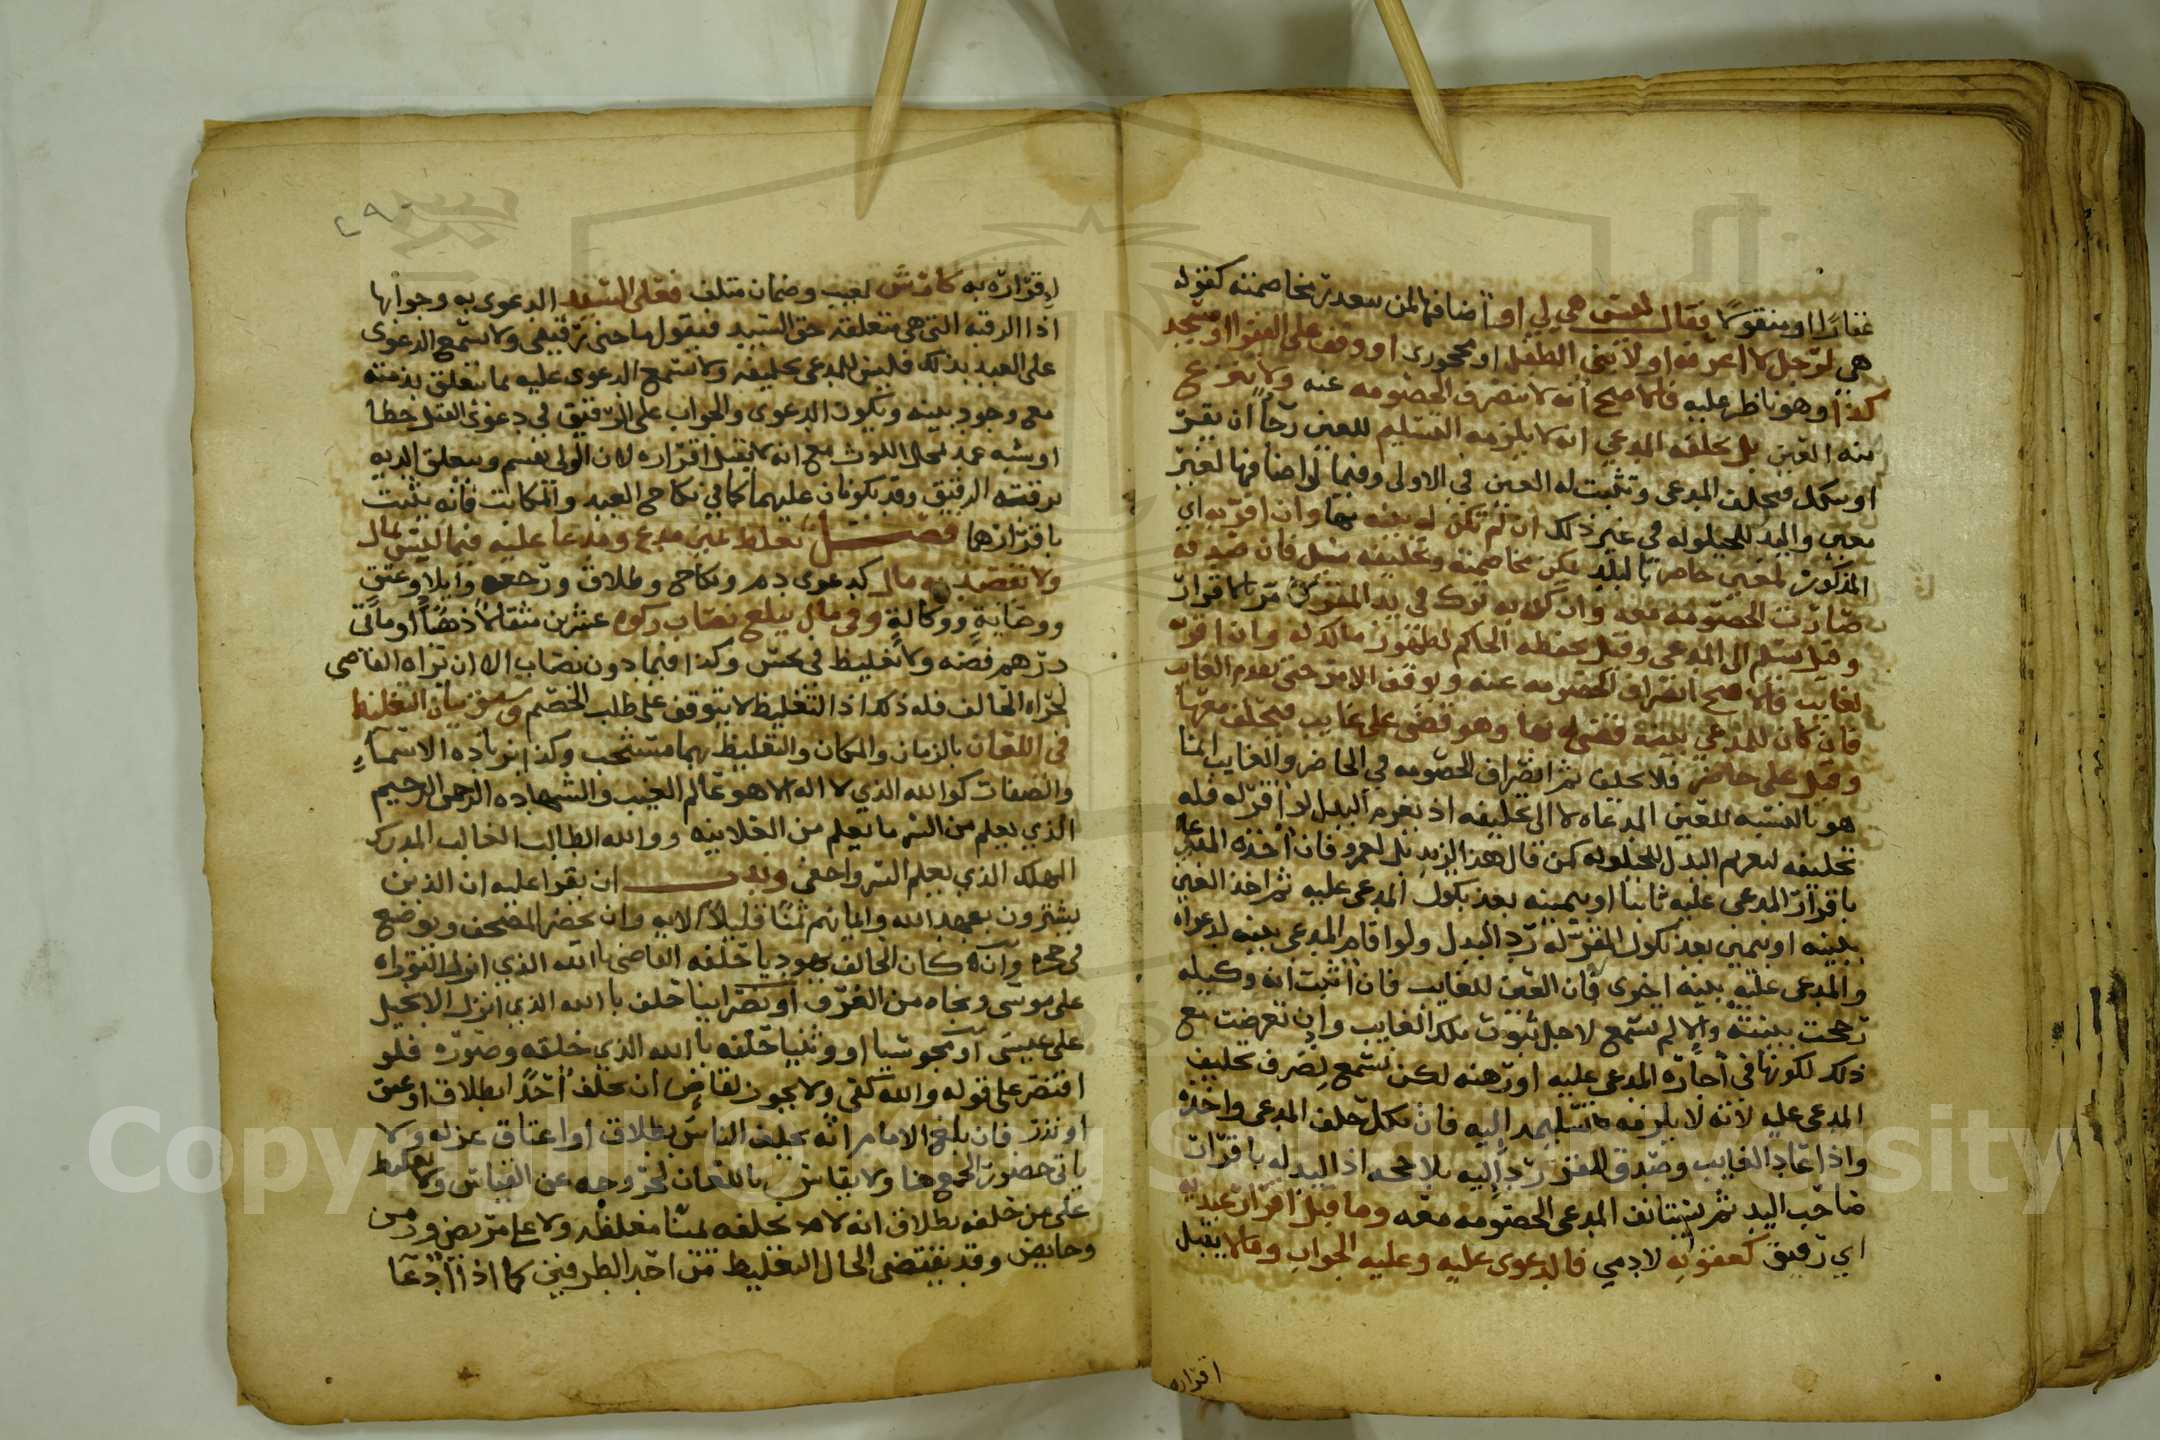 عقارا او منقولا فقال ليس هي لي او اضافها لمن يتعذر مخاصمته كقوله
هي لرجل لا اعرفه او لابني الطفل او محجوري او وقف على الفقرا او مسجد
كذا وهو ناظر عليه فالاصح انه لا تنصرف الخصومه عنه ولا تنزع
منه العين بل يحلفه المدعي انه لا يلزمه التسليم للعين رجا ان يقر
او ينكل فيحلف المدعي وتثبت له العين في الاولى وفيما لو اضافها لغير
معين والبدل للحيلوله في غير ذلك ان لم تكن له بينه بها وان اقر به اي
المذكور لمعين حاضر بالبلد يمكن مخاصمته وتحليفه سئل فان صدقه
صارت الخصومه معه وان كذبه ترك في يد المقر كما مر بالاقرار
وقيل يسلم الى المدعي وقيل يحفظه الحاكم لظهور مالك له وان اقر به
لغايب فالاصح انصراف الخصومه عنه ويوقف الامر حتى يقدم الغايب
فان كان للمدعي بينة قضي له بها وهو قضى على غايب فيحلف معها
وقيل على حاضر فلا يحلف ثم انصراف الخصومه في الحاضر والغايب انما
هو بالنسبه للعين المدعاه لا الى تحليفه اذ يغرم البدل لو اقر له فله
تحليفه ليغرم البدل للحيلوله كمن قال هذا لزيد بل لعمرو فان اخذه المدعي
باقرار المدعى عليه ثانيا او بيمينه بعد نكول المدعى عليه ثم اخذ العين
ببينه او بيمين بعد نكول المقر له رد البدل ولو اقام المدعي بينه لدعواه
والمدعى عليه بينه اخرى بان العين للغايب فان اثبت انه وكيله
رجحت ببينته والا لم تسمع لاجل ثبوت ملك الغايب وان تعرضت مع
ذلك لكونها في اجارة المدعى عليه او رهنه لكن تسمع لصرف تحليف
المدعى عليه لانه لا يلزمه تسليمه اليه فان نكل حلف المدعي واخذه
واذا عاد الغايب وصدق المقر رد اليه بلا حجه اذ اليد له باقرار
صاحب اليد ثم يستانف المدعي الخصومه معه وما قبل اقرار عبد به
اي رقيق كعقوبه لادمي فالدعوى عليه وعليه الجواب وما لا يقبل
اقراره
٢٩٠
لاقراره به كارش لعيب وضمان متلف فعلى السيد الدعوى به وجوابها
اذ الرقبه التي هي متعلقه حق السيد فيقول ما جنى رقيقي ولا تسمع الدعوى
على العبد بذلك فليس للمدعي تحليفه ولا تسمع الدعوى عليه بما يتعلق بذمته
مع وجود بينه وتكون الدعوى والجواب على الرقيق في دعوى القتل خطا
او شبه عمد بمحل اللوث مع انه لا يقبل اقراره لان الولي يقسم ويتعلق الديه
برقبته الرقيق وقد يكونان عليهما كما في نكاح العبد والمكاتب فانه يثبت
باقرارهما فصل تغلظ يمين مدع ومدعا عليه فيما ليس بمال
ولا يقصد به مال كدعوى دم ونكاح وطلاق ورجعه وايلا وعتق
ووصايةٍ ووكالةٍ وفي مال يبلغ نصاب زكوه عشرين مثقالا ذهبًا او مائتي
درهم فضه ولا تغليظ في نجس وكذا فيما دون نصاب الا ان تراه القاضي
لجراه الحالف فله ذلك اذ التغليظ لا يتوقف على طلب الخصم وسبق بيان التغليظ
في اللعان بالزمان والمكان والتغليظ بهما مستحب وكذا بزياده الاسماء
والصفات كوالله الذي لا اله الا هو عالم الغيب والشهاده الرحمن الرحيم
الذي يعلم من السر ما يعلم من العلانيه ووالله الطالب الغالب المدرك
المهلك الذي يعلم السر واخفى وندب ان يقرا عليه ان الذين
يشترون بعهد الله وايمانهم ثمنًا قليلاً الايه وان يحضر المصحف ويوضع
في حجره وان كان الحالف يهوديا حلفه القاضي بالله الذي انزل التوراه
على موسى ونجاه من الغرق او نصرانيا حلف بالله الذي انزل الانجيل
على عيسى او مجوسيا او وثنيا حلفه بالله الذي خلقه وصوره فلو
اقتصر على قوله والله كفى ولا يجوز لقاض ان يحلف احدًا بطلاق او عتق
او نذر فان بلغ الامام انه يحلف الناس بطلاق او اعتاق عزله ولا
ياتي حضور الجمع هنا ولا يقاس باللعان لخروجه عن القياس ولا تغليظ
على من حلفه بطلاق انه لا يحلفه يمينا مغلظه ولا على مريض وزمن
وحايض وقد يقتضي الحال التغليظ من احد الطرفين كما اذا ادعا